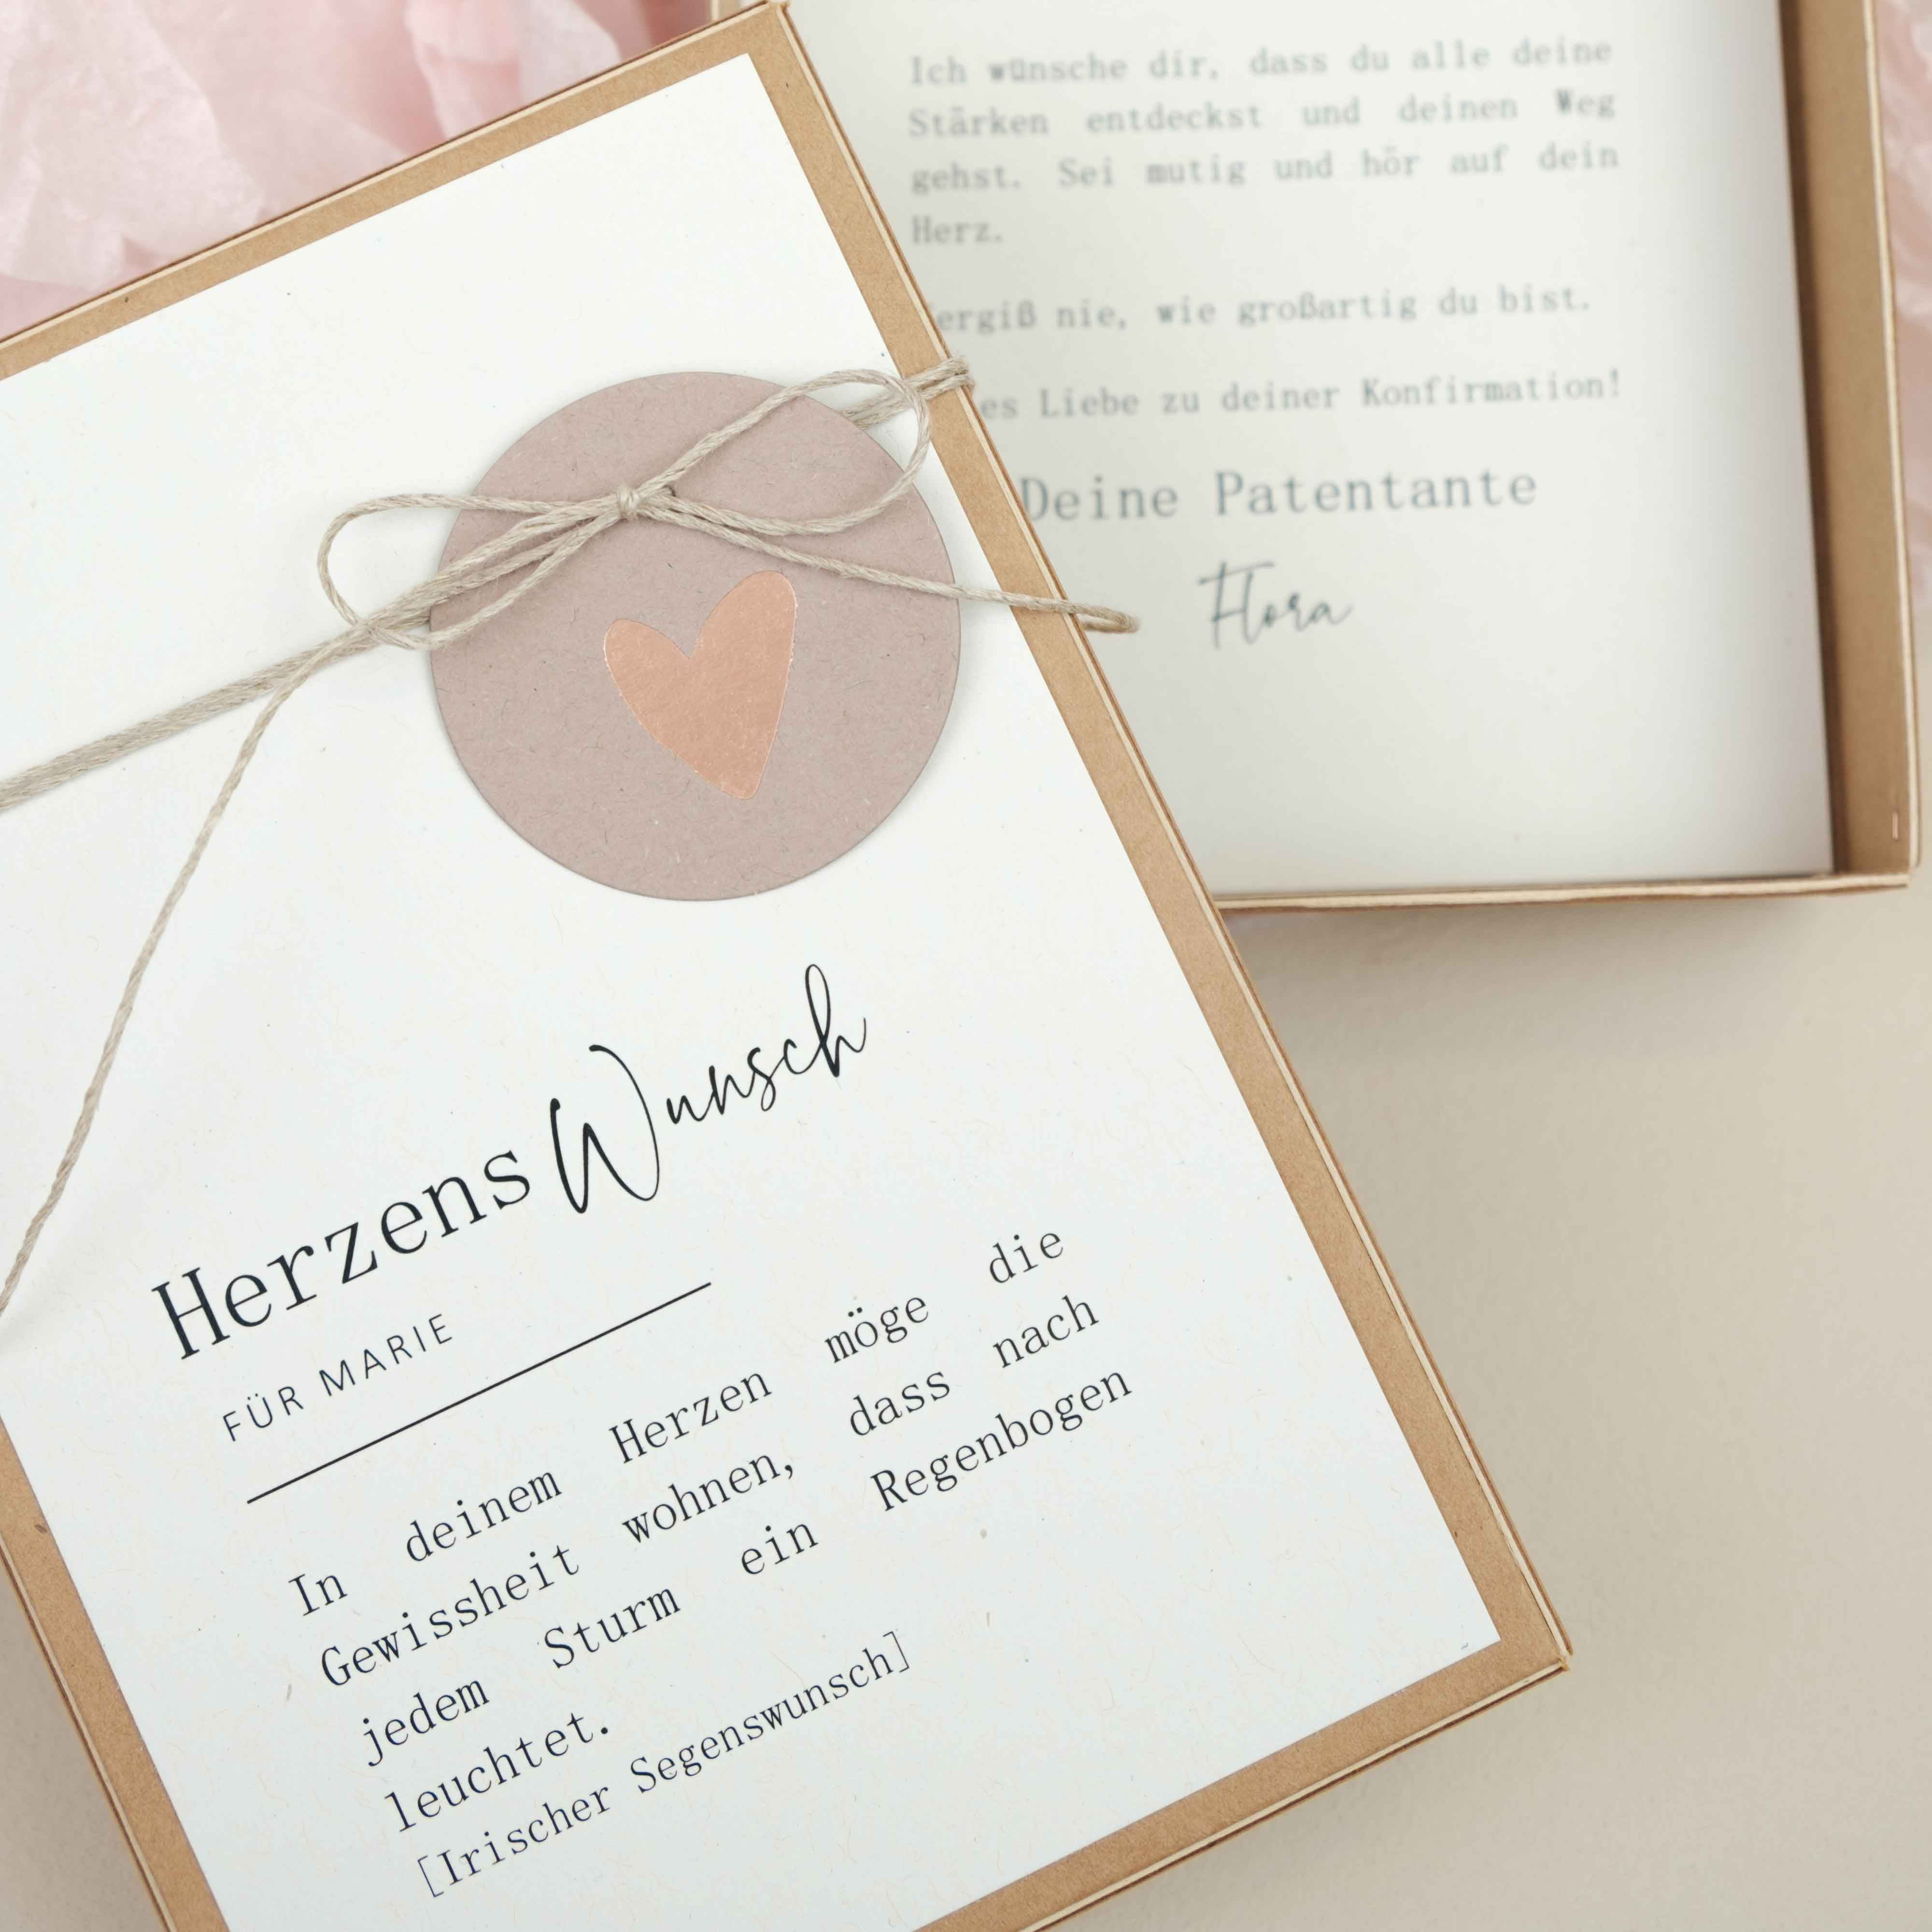 Ich wünsche dir, dass du alle deine
Stärken entdeckst und deinen Weg
gehst. Sei mutig und hör auf dein
Herz.
ergiß nie, wie großartig du bist.
es Liebe zu deiner Konfirmation!
Deine Patentante
Flora
HerzensWunsch
FÜR MARIE
In deinem Herzen möge die
Gewissheit wohnen, dass nach
jedem Sturm ein Regenbogen
leuchtet.
[Irischer Segenswunsch]